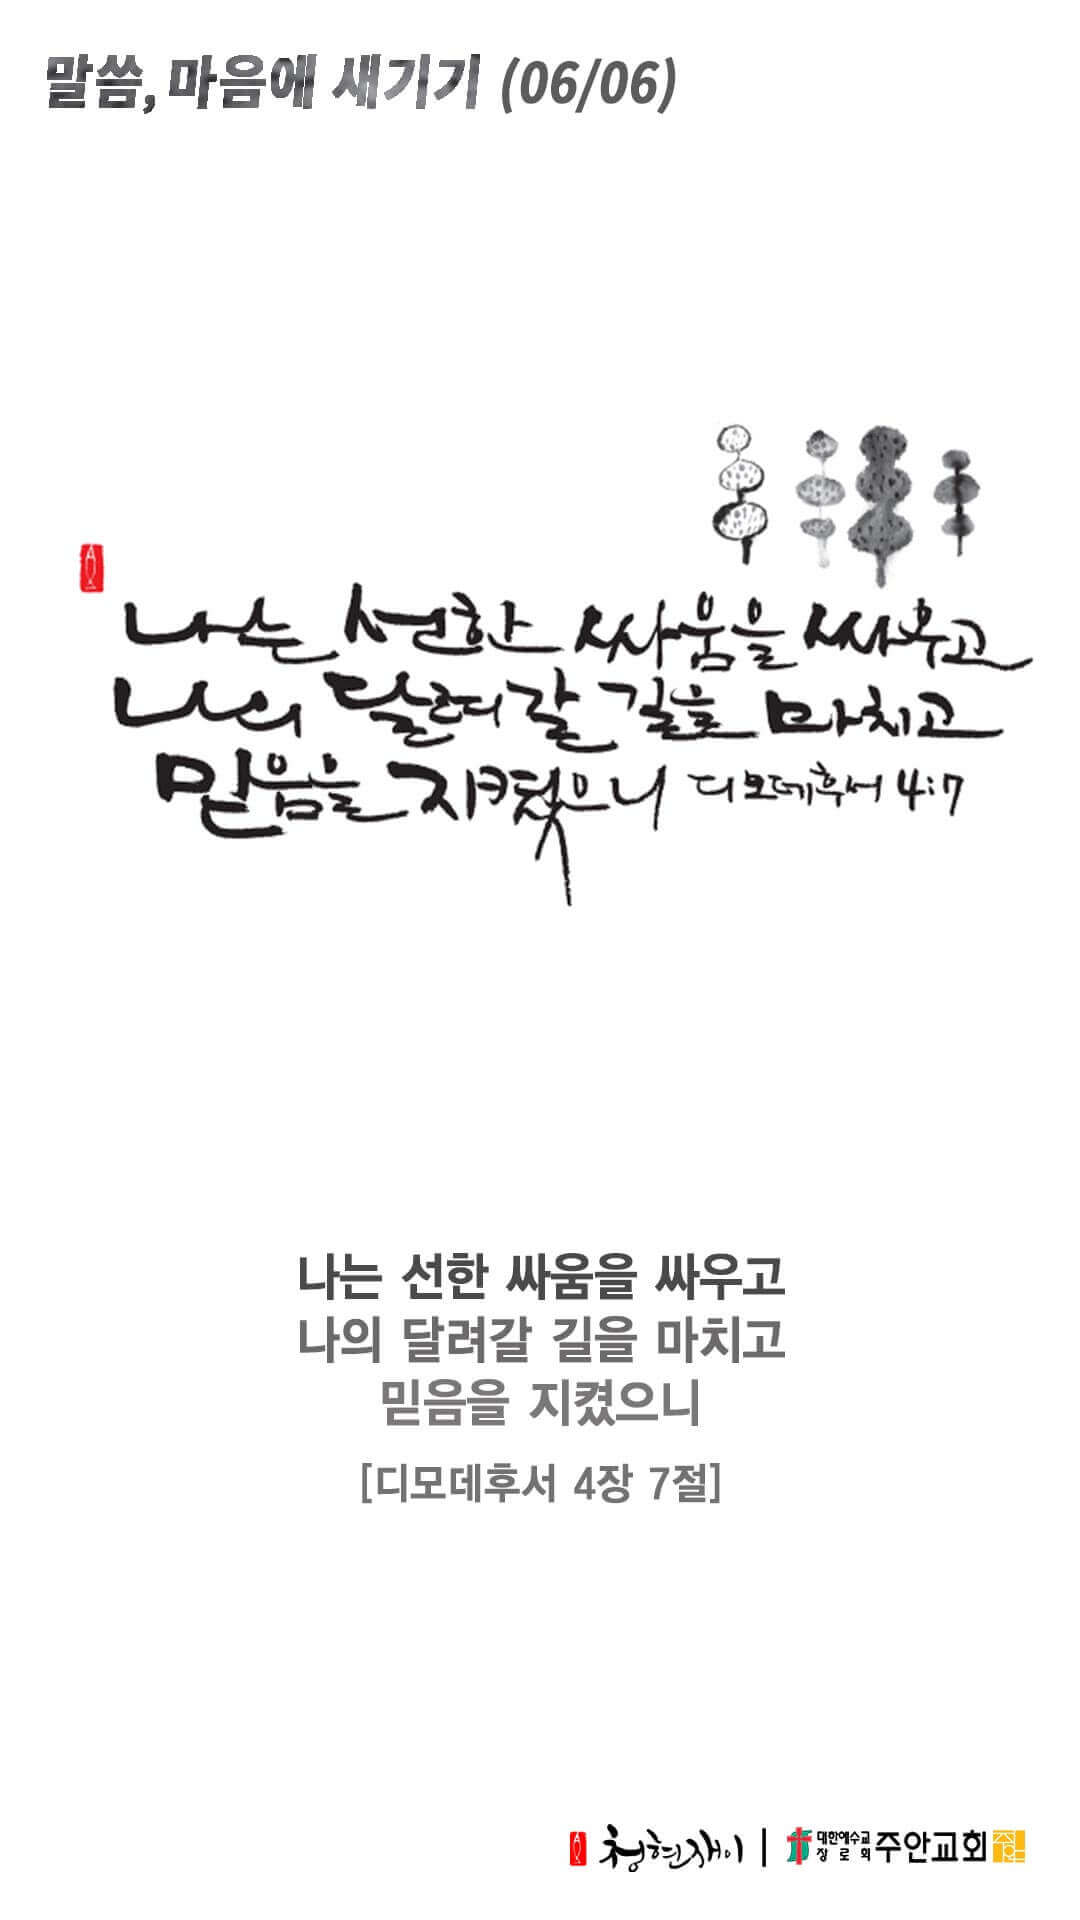 말씀, 마음에 새기기 (06/06)
나는 선한 싸움을 싸우고
나의 달려갈 길을 마치고
믿음을 지켰으니 디모데후서 4:7
나는 선한 싸움을 싸우고
나의 달려갈 길을 마치고
믿음을 지켰으니
[디모데후서 4장 7절]
청현재이 | 대한예수교장로회 주안교회 주안